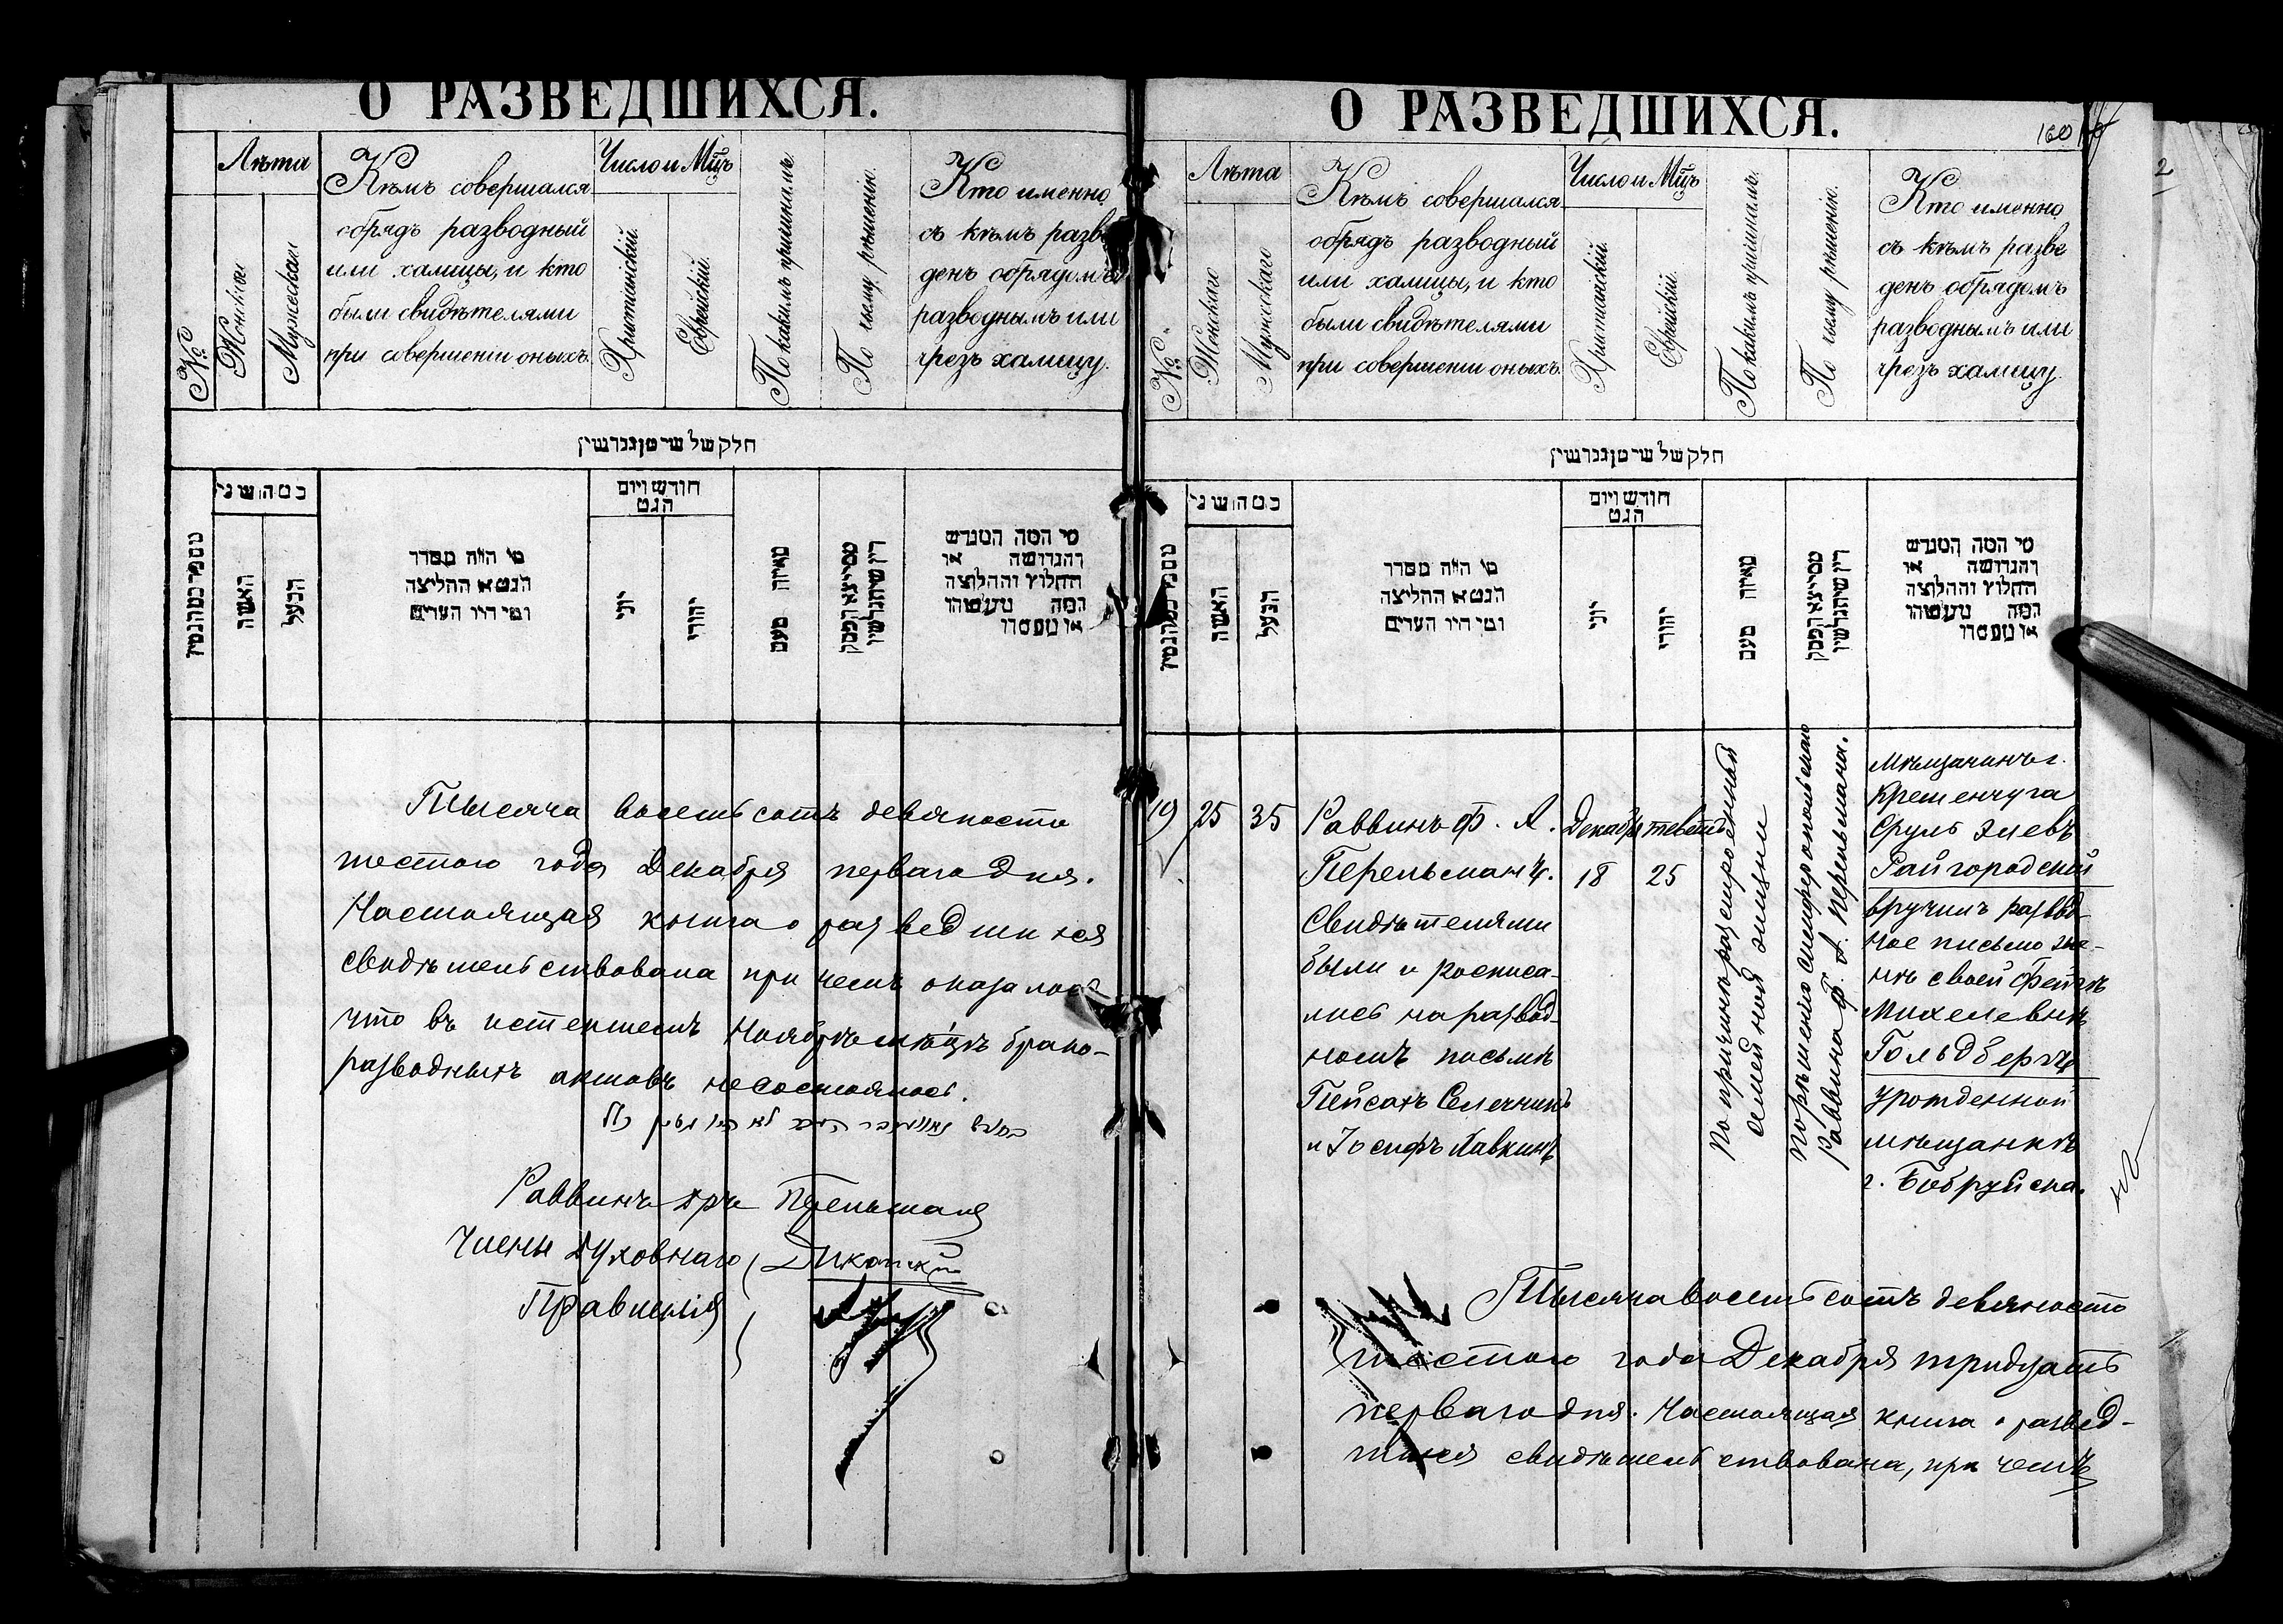 О РАЗВЕДШИХСЯ.
№
Лѣта
Женское
Мужеская
Кѣмъ совершался
обрядъ разводный
или халицы, и кто
были свидѣтелями
при совершеніи оныхъ.
Число и Мцъ
Христіанскій.
Еврейскій.
По какимъ причинамъ.
По чьему рѣшенію.
Кто именно
съ кѣмъ разве
денъ обрядомъ
разводнымъ или
чрезъ халицу.
חלק של שי מן גרושין
האשה
הבעל
מי היה מסדר
הגט או החליצה
ומי היו העדים
חודש ויום
הגט
יוני
יהודי
מאיזה טעם
מי המה המגרש
והגרושה או
החלוץ והחלוצה
המה מעשהו
או מפסרו
Тысяча восемьсотъ девяносто
шестого года Декабря перваго дня.
Настоящая книга о разведшихся
свидѣтельствована при чемъ оказалось
что въ истекшемъ Ноябрѣ мѣсяцѣ брако-
разводныхъ актовъ несостоялось.
Раввинъ др. Перельманъ
Члены Духовнаго
Правленія
О РАЗВЕДШИХСЯ.
160
№
Лѣта
Женскаго
Мужескаго
Кѣмъ совершался
обрядъ разводный
или халицы, и кто
были свидѣтелями
при совершеніи оныхъ.
Число и Мцъ
Христіанскій.
Еврейскій.
По какимъ причинамъ.
По чьему рѣшенію.
Кто именно
съ кѣмъ разве
денъ обрядомъ
разводнымъ или
чрезъ халицу
חלק של שי מן גרושין
האשה
הבעל
מי היה מסדר
הגט או החליצה
ומי היו העדים
חודש ויום
הגט
יוני
יהודי
מאיזה טעם
מי המה המגרש
והגרושה או
החלוץ והחלוצה
המה מעשהו
או מפסרו
19 25 35
Раввинъ Ф. А.
Перельманъ.
Свидѣтелями
были и росписа-
лись на развод-
номъ письмѣ
Пейсахъ Селечникъ
и Іосифъ Хавкинъ
Декабря теветъ
18 25
По причинѣ разстроенной
семейной жизни
По рѣшенію Симферопольскаго
Раввина Ф. А. Перельмана.
мѣщанинъ г.
Кременчуга
Сруль Элевъ
Райгородскій
вручилъ развод-
ное письмо же-
нѣ своей Фейгѣ
Михелевнѣ
Гольдбергъ
урожденной
мѣщанкѣ
г. Бобруйска.
Тысяча восемьсотъ девяносто
шестого года Декабря тридцать
перваго дня. Настоящая книга о развед-
шихся свидѣтельствована, при чемъ
2